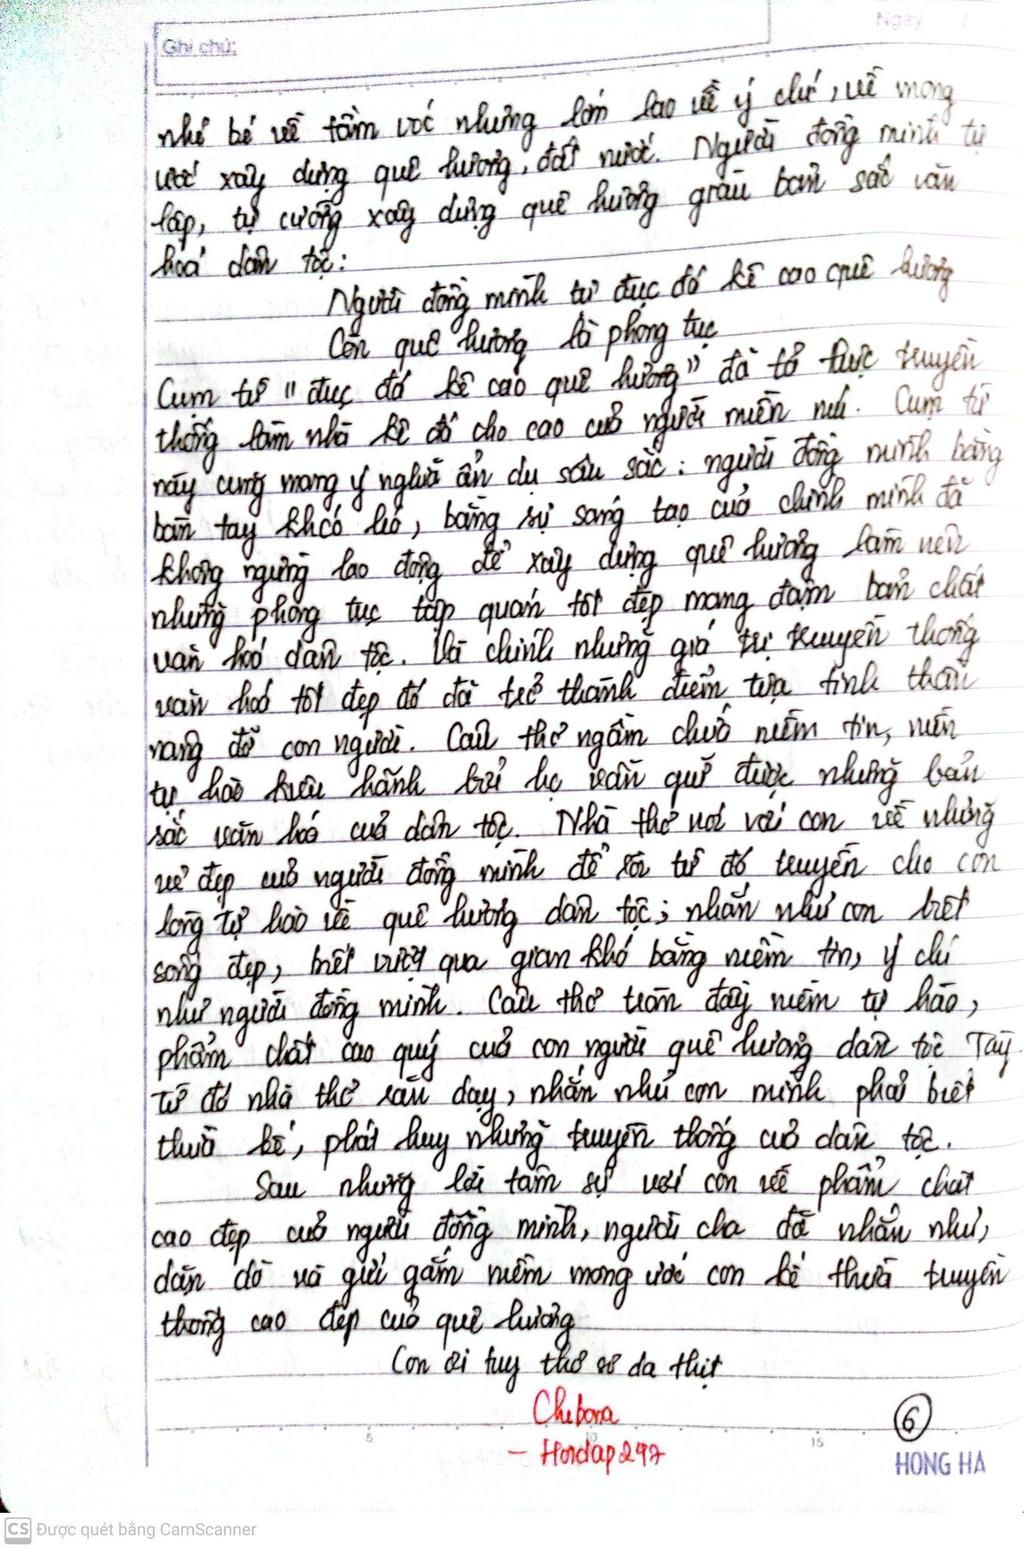 Ngày /
Ghi chú:
nhỏ bé về tầm vóc nhưng lớn lao về ý chí, về mong
ước xây dựng quê hương, đất nước. Người đồng mình tự
lập, tự cường xây dựng quê hương giàu bản sắc văn
hoá dân tộc:
Người đồng mình tự đục đá kê cao quê hương
Còn quê hương là phong tục
Cụm từ "đục đá kê cao quê hương" đã tả thực truyền
thống làm nhà kê đá cho cao của người miền núi. Cụm từ
này cũng mang ý nghĩa ẩn dụ sâu sắc: người đồng mình bằng
bàn tay khéo léo, bằng sự sáng tạo của chính mình đã
không ngừng lao động để xây dựng quê hương làm nên
những phong tục tập quán tốt đẹp mang đậm bản chất
văn hoá dân tộc. Và chính những giá trị truyền thống
văn hoá tốt đẹp đó đã trở thành điểm tựa tinh thần
nâng đỡ con người. Câu thơ ngầm chứa niềm tin, niềm
tự hào kiêu hãnh bởi họ vẫn giữ được những bản
sắc văn hoá của dân tộc. Nhà thơ nói với con về những
vẻ đẹp của người đồng mình để rồi từ đó truyền cho con
lòng tự hào về quê hương dân tộc; nhắn nhủ con biết
sống đẹp, biết vượt qua gian khó bằng niềm tin, ý chí
như người đồng mình. Câu thơ tràn đầy niềm tự hào,
phẩm chất cao quý của con người quê hương dân tộc Tày.
Từ đó nhà thơ răn dạy, nhắn nhủ con mình phải biết
thừa kế, phát huy những truyền thống của dân tộc.
Sau những lời tâm sự với con về phẩm chất
cao đẹp của người đồng mình, người cha đã nhắn nhủ,
dặn dò và gửi gắm niềm mong ước con kế thừa truyền
thống cao đẹp của quê hương
Con ơi tuy thô sơ da thịt
Chebora
- Hoidap247
6
5 10 15
HONG HA
CS Được quét bằng CamScanner